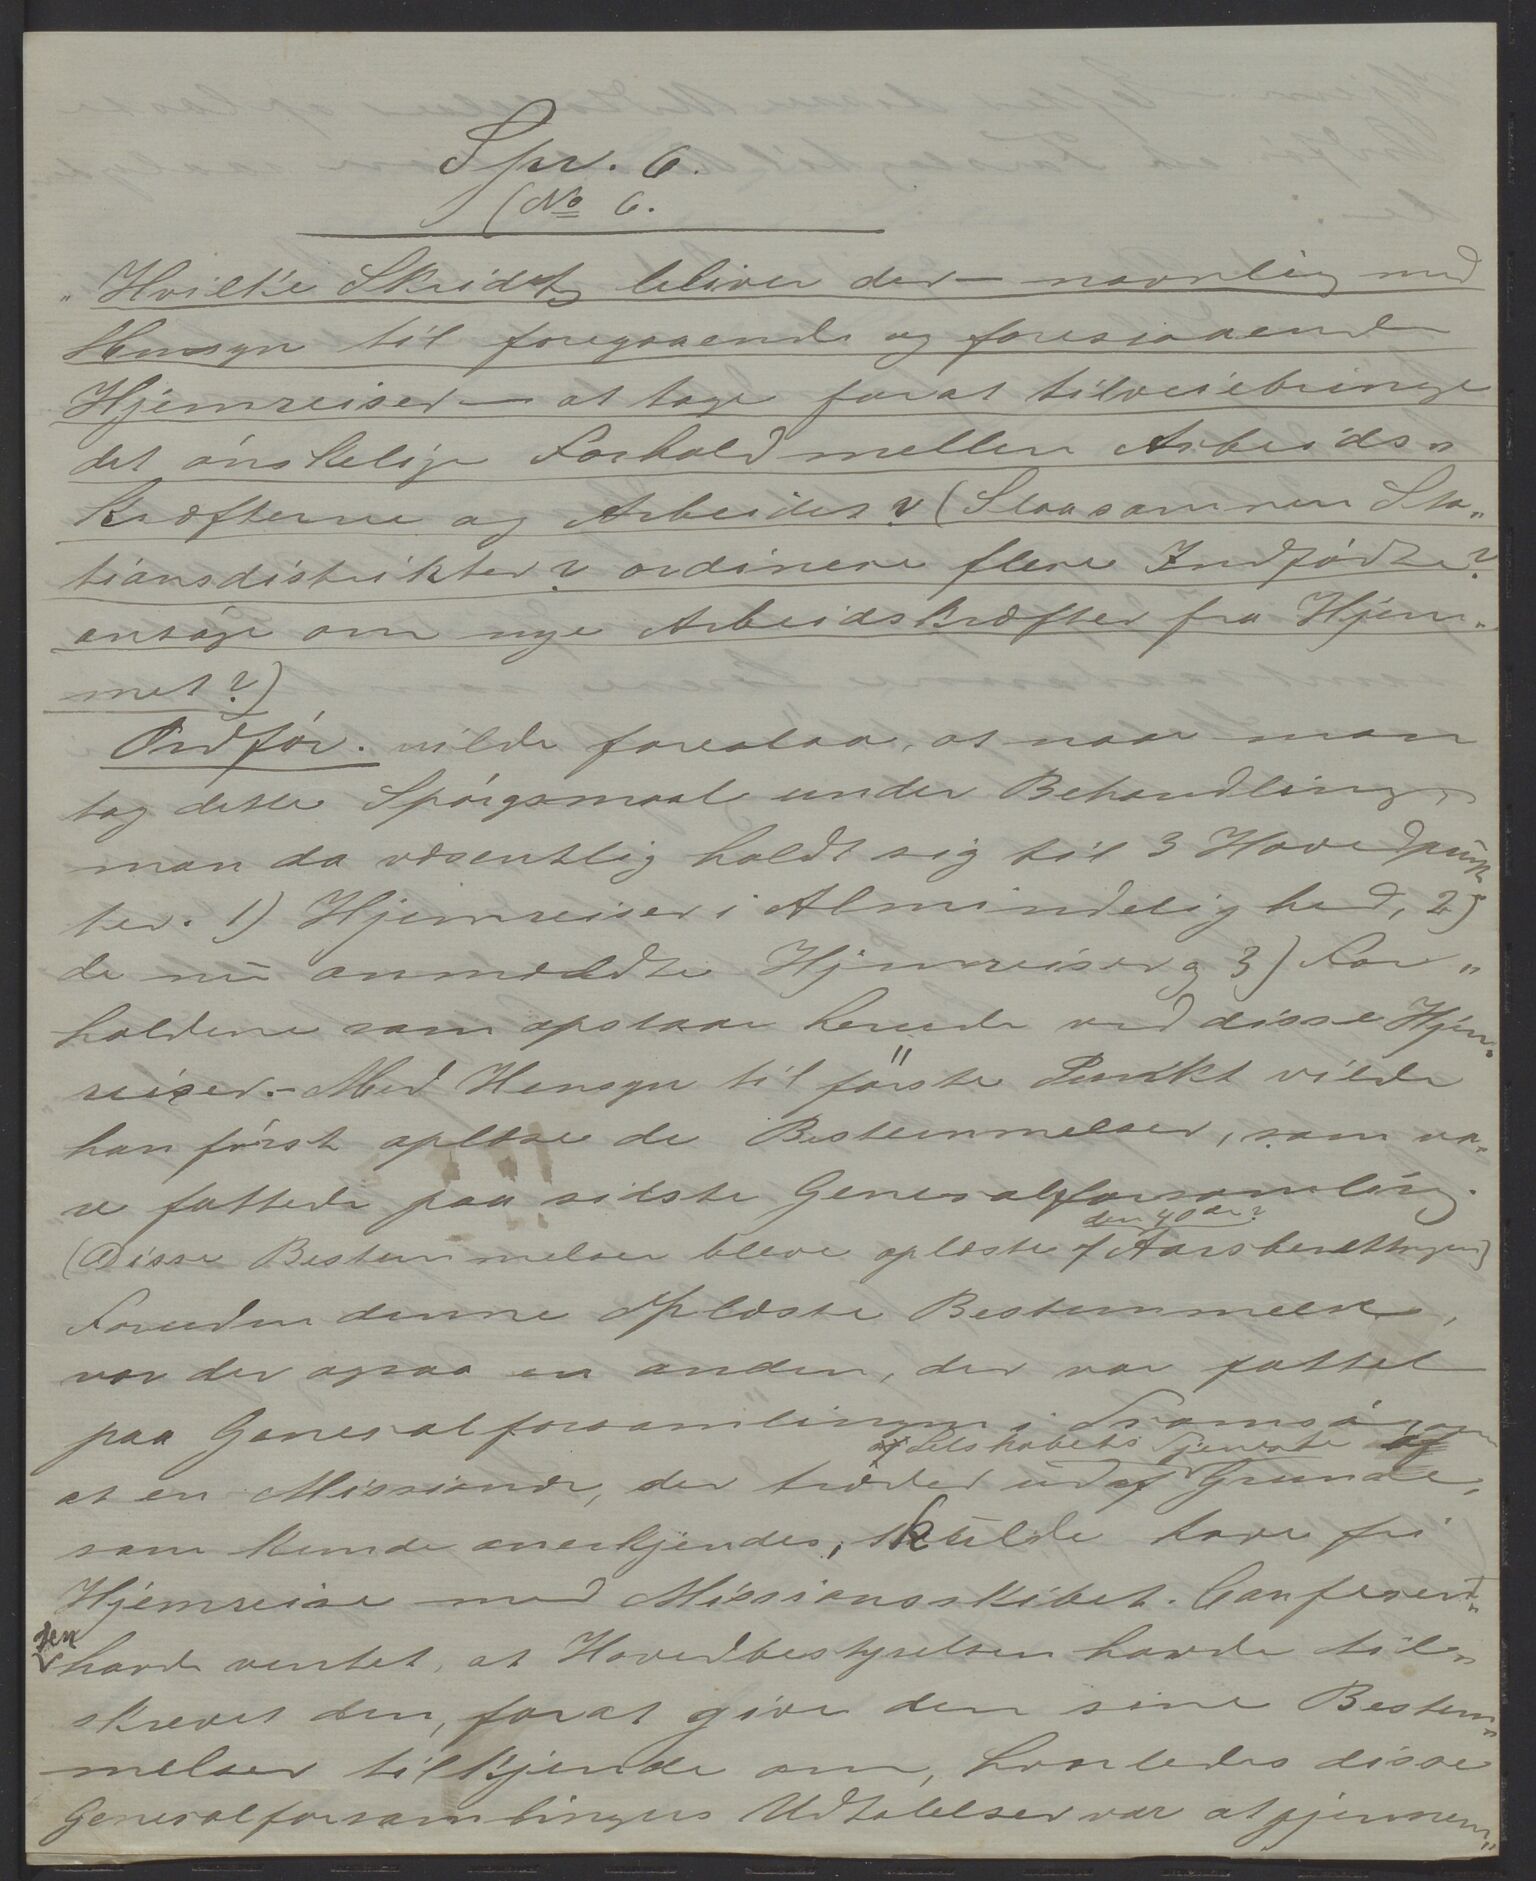 Spr. 6.
(No 6.
"Hvilke Skridt bliver der – navnlig med
Hensyn til foregaaende og forestaaende
Hjemreiser – at tage forat tilveiebringe
det ønskelige Forhold mellem Arbeids„
kræfterne og Arbeidet? (Slaa sammen Sta„
tionsdistrikter? ordinere flere Indfødte?
ansøge om nye Arbeidskræfter fra Hjem„
met?)
Ordfør. vilde foreslaa, at naar man
tog dette Spørgsmaal under Behandling,
man da væsentlig holdt sig til 3 Hovedpunk
ter. 1) Hjemreiser i Almindelighed, 2)
de nu anmeldte Hjemreiser og 3) For„
holdene som opstaar herude ved disse Hjem„
reiser. – Med Hensyn til første Punkt vilde
han først oplæse de Bestemmelser, som va„
re fattede paa sidste Generalforsamling.
(Disse Bestemmelser bleve oplæste af den 40de? Aarsberetningen)
Foruden denne oplæste Bestemmelse,
var der ogsaa en anden, der var fattet
paa Generalforsamlingen i Tromsø
at en Missionær, der træder ud af Selskabets Tjeneste af Grunde,
som kunde anerkjendes, skulde have fri
Hjemreise med Missionsskibet. Conferent„
zen havde ventet, at Hovedbestyrelsen havde til„
skrevet den, forat give den sine Bestem„
melser tilkjende om, hvorledes disse
Generalforsamlingers Udtalelser var at gjennem„